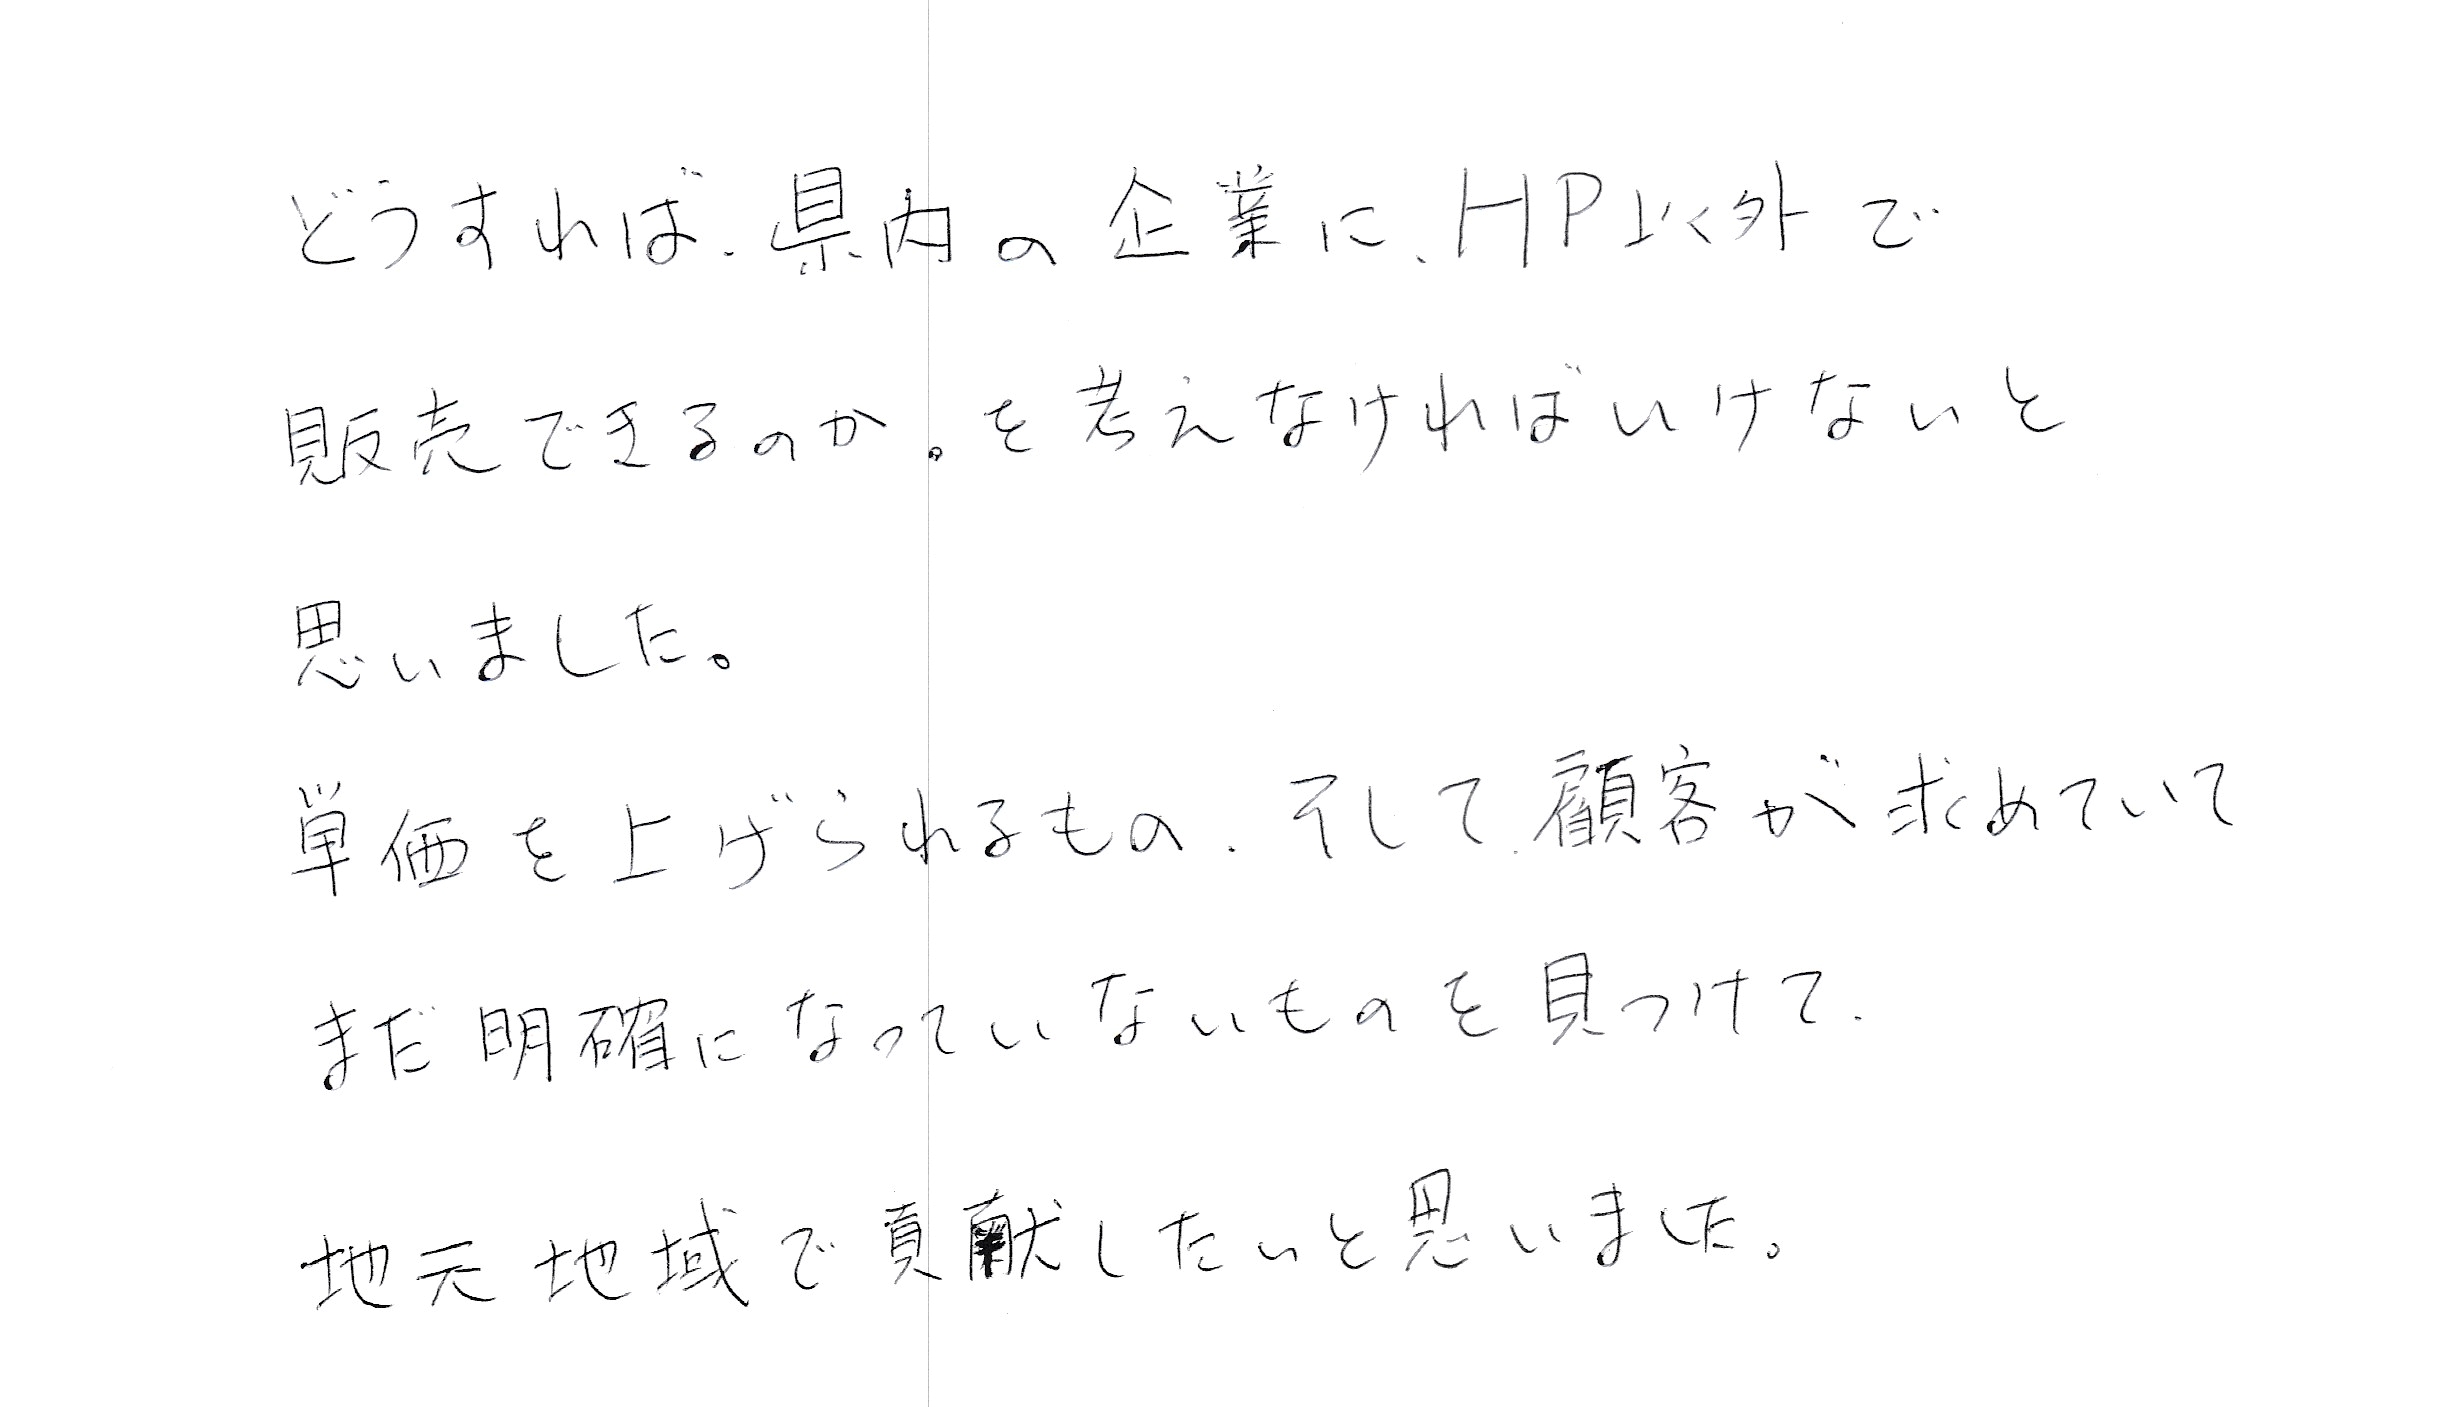 どうすれば、県内の企業に、HP以外で
販売できるのか。を考えなければいけないと
思いました。
単価を上げられるもの、そして、顧客が求めていて
まだ明確になっていないものを見つけて、
地元地域で貢献したいと思いました。